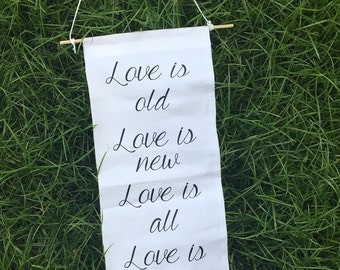 Love is
old
Love is
new
Love is
all
Love is